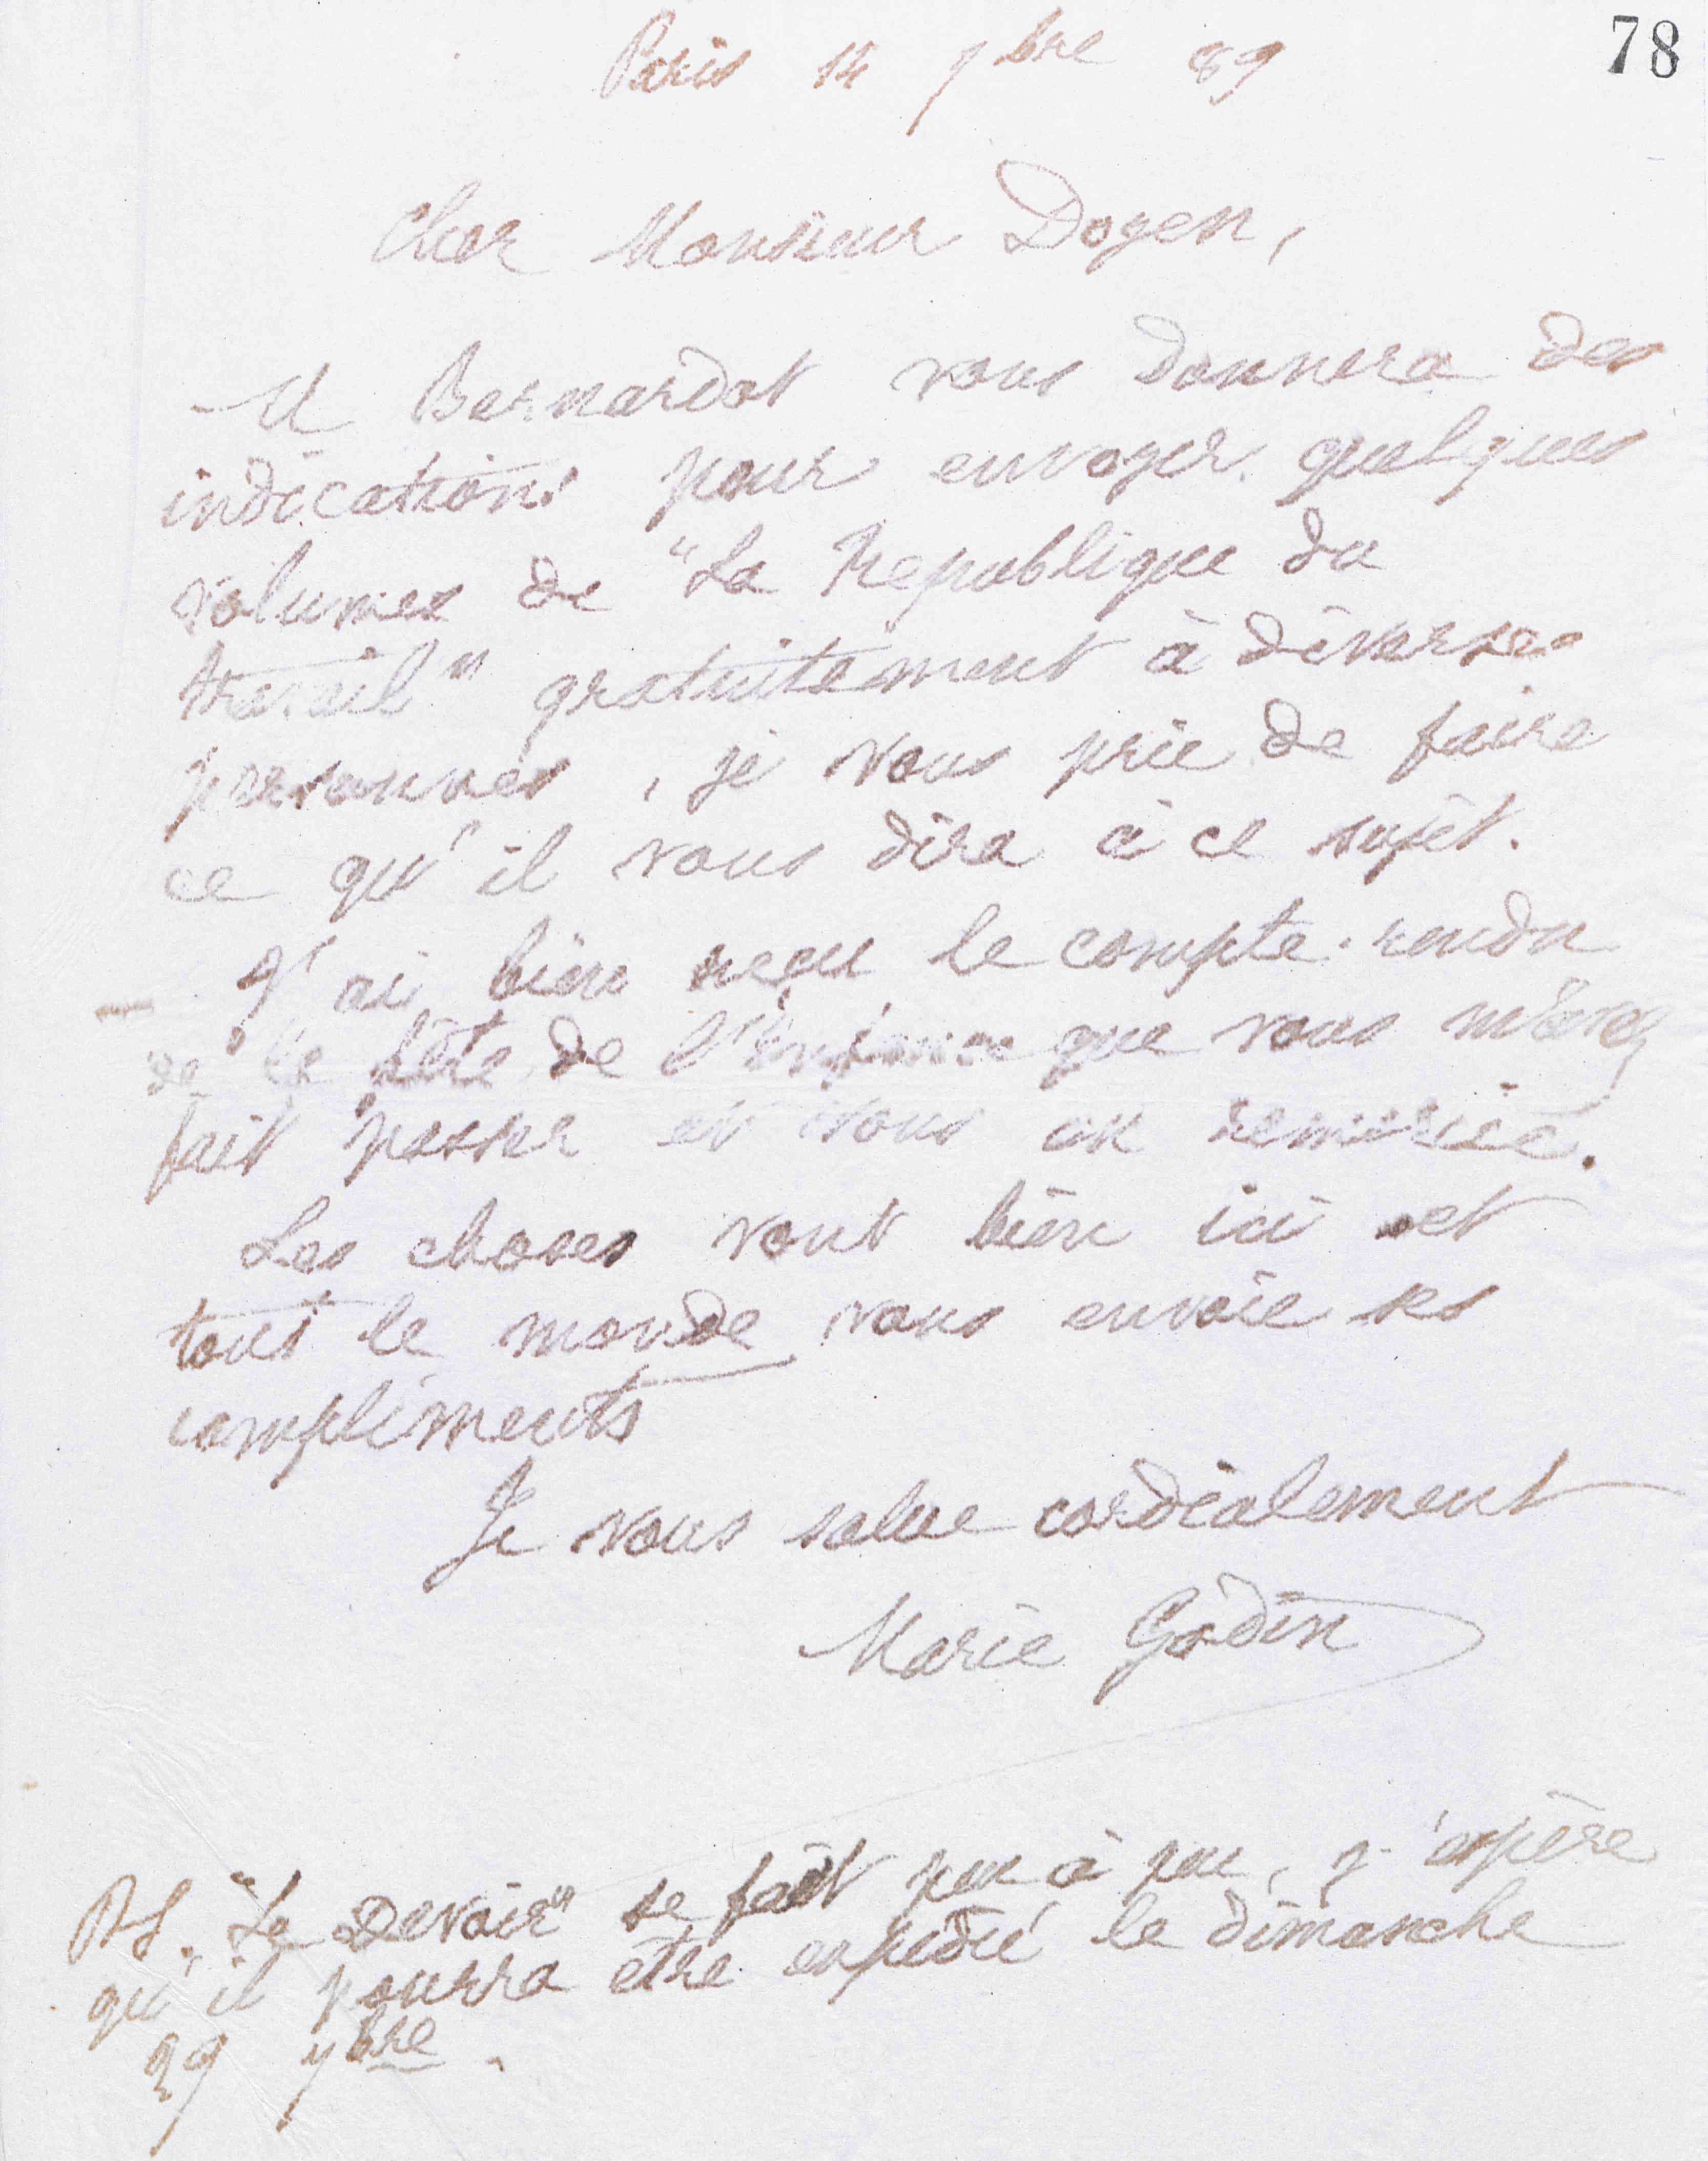 78
Paris 14 7bre 89
Cher Monsieur Doyen,
M Bernardot vous donnera des
indications pour envoyer quelques
volumes de "La République du
travail" gratuitement à diverses
personnes, je vous prie de faire
ce qu'il vous dira à ce sujet.
J'ai bien reçu le compte-rendu
de la fête de l'Enfance que vous m'avez
fait passer et vous en remercie.
Les choses vont bien ici et
tout le monde vous envoie ses
compliments
Je vous salue cordialement
Marie Godin
PS. "Le Devoir" se fait peu à peu, j'espère
qu'il pourra être expédié le dimanche
29 7bre.